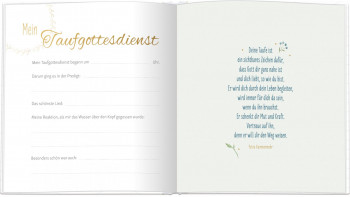 Mein
Taufgottesdienst
Mein Taufgottesdienst begann um
Uhr.
Darum ging es in der Predigt
Das schönste Lied
Meine Reaktion, als mir das Wasser über den Kopf gegossen wurde
Besonders schön war auch
Deine Taufe ist
ein sichtbares Zeichen dafür,
dass Gott dir ganz nahe ist
und dich liebt, so wie du bist.
Er wird dich durch dein Leben begleiten,
wird immer für dich da sein,
wenn du ihn brauchst.
Er schenkt dir Mut und Kraft.
Vertraue auf ihn,
denn er will dir den Weg weisen.